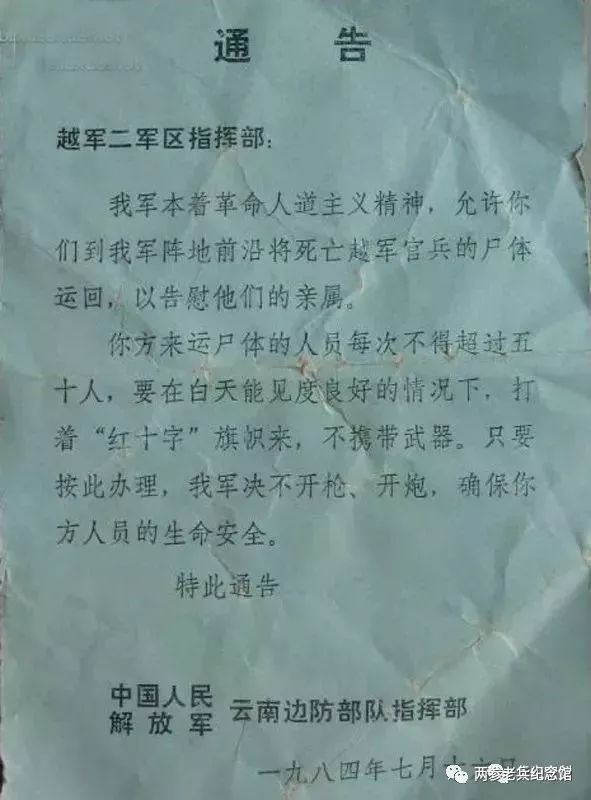 通告
越军二军区指挥部:
我军本着革命人道主义精神，允许你
们到我军阵地前沿将死亡越军官兵的尸体
运回，以告慰他们的亲属。
你方来运尸体的人员每次不得超过五
十人，要在白天能见度良好的情况下，打
着“红十字”旗帜来，不携带武器。只要
按此办理，我军决不开枪、开炮，确保你
方人员的生命安全。
特此通告
中国人民
解放军
云南边防部队指挥部
一九八四年七月十
两参老兵纪念馆